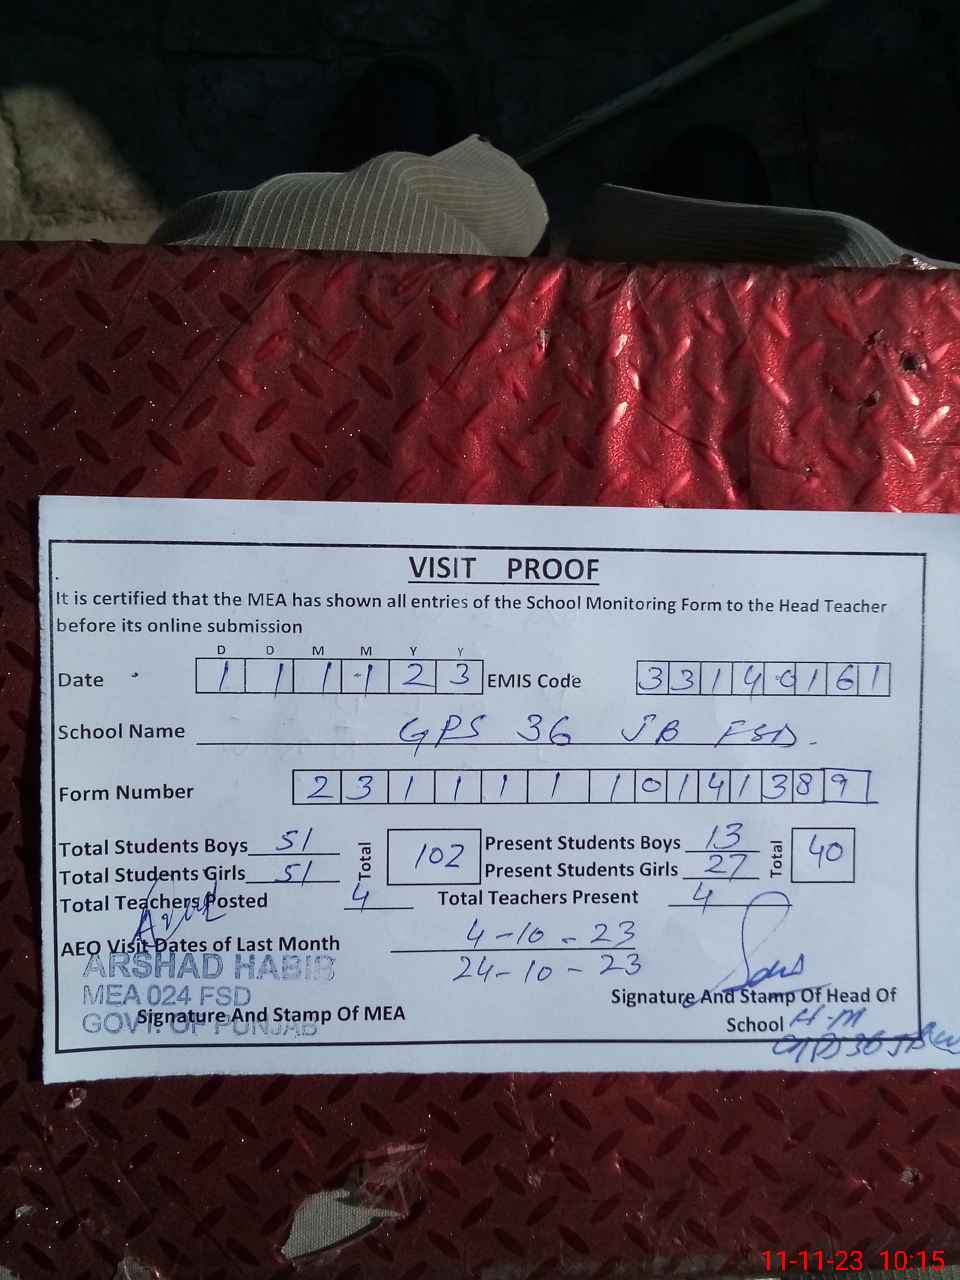 VISIT PROOF
It is certified that the MEA has shown all entries of the School Monitoring Form to the Head Teacher
before its online submission
D D M M Y Y
Date 1 1 1 1 2 3 EMIS Code 3 3 1 4 0 1 6 1
School Name GPS 36 JB FSD.
Form Number 2 3 1 1 1 1 1 0 1 4 1 3 8 9
Total Students Boys 51 Total 102 Present Students Boys 13 Total 40
Total Students Girls 51 Present Students Girls 27
Total Teachers Posted 4 Total Teachers Present 4
AEO Visit Dates of Last Month 4-10-23
24-10-23
ARSHAD HABIB
MEA 024 FSD
GOVT. OF PUNJAB
Signature And Stamp Of MEA
Signature And Stamp Of Head Of
School H-M
GPS 36 JB
11-11-23 10:15